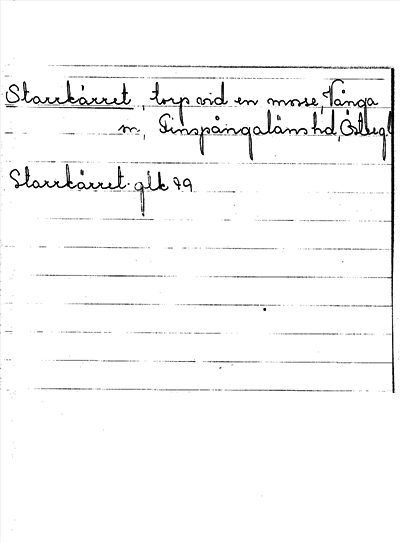 Starrkärret, torp vid en mosse, Vånga
sn, Finspångaläns hd, Östergl
Starrkärret glk 79